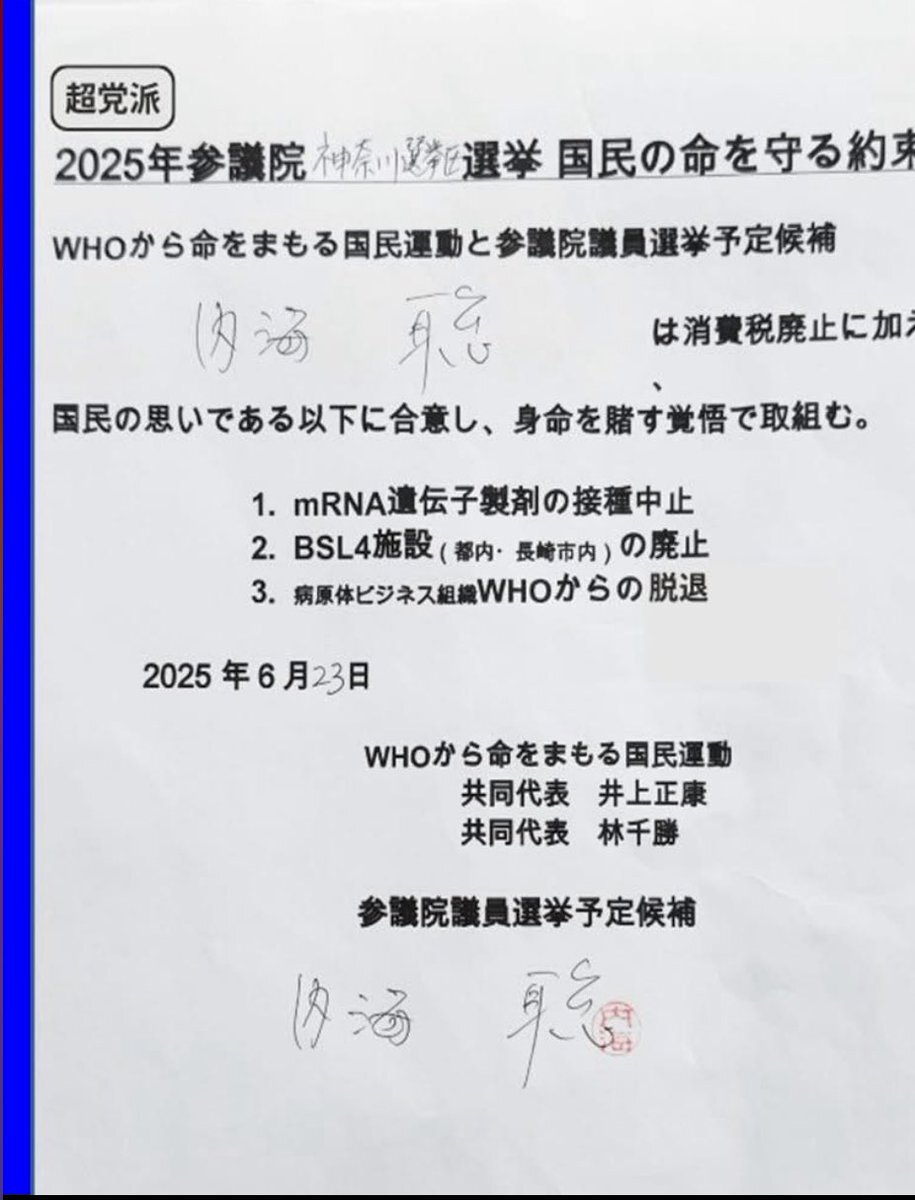 超党派
2025年参議院 神奈川選挙区 選挙 国民の命を守る約束
WHOから命をまもる国民運動と参議院議員選挙予定候補
内海 聡 は消費税廃止に加え
、
国民の思いである以下に合意し、身命を賭す覚悟で取組む。
1. mRNA遺伝子製剤の接種中止
2. BSL4施設(都内・長崎市内)の廃止
3. 病原体ビジネス組織WHOからの脱退
2025 年 6 月23日
WHOから命をまもる国民運動
共同代表 井上正康
共同代表 林千勝
参議院議員選挙予定候補
内海 聡
内海